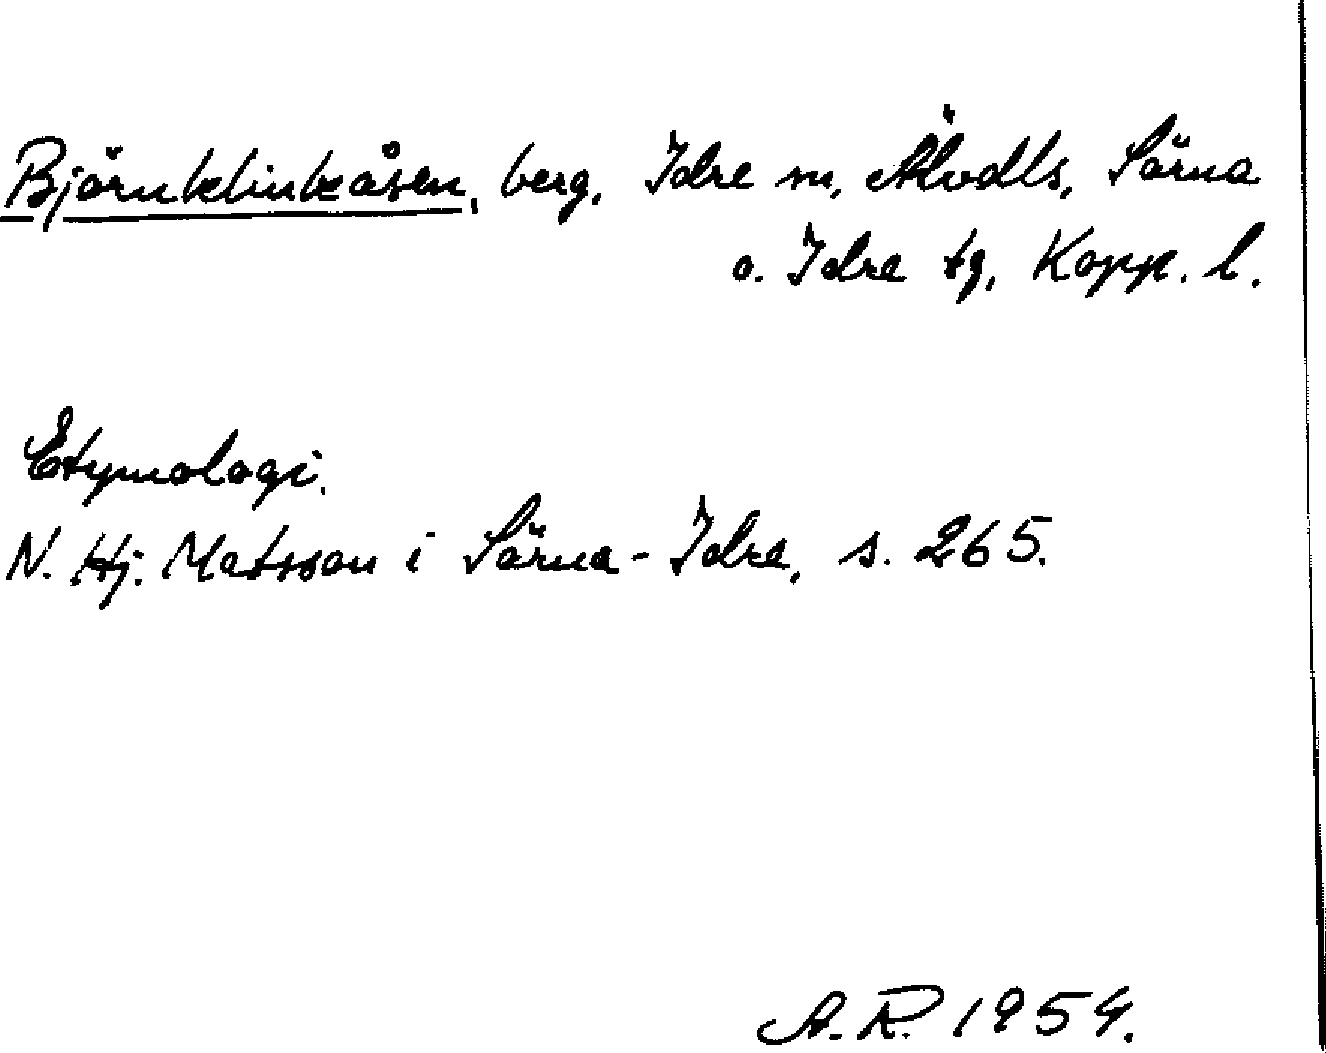 Björnklinkåsen, berg, Idre sn, Älvdls, Särna
o. Idre tg, Kopp. l.
Etymologi.
N. Hj. Matsson i Särna-Idre, s. 265.
A. R. 1954.